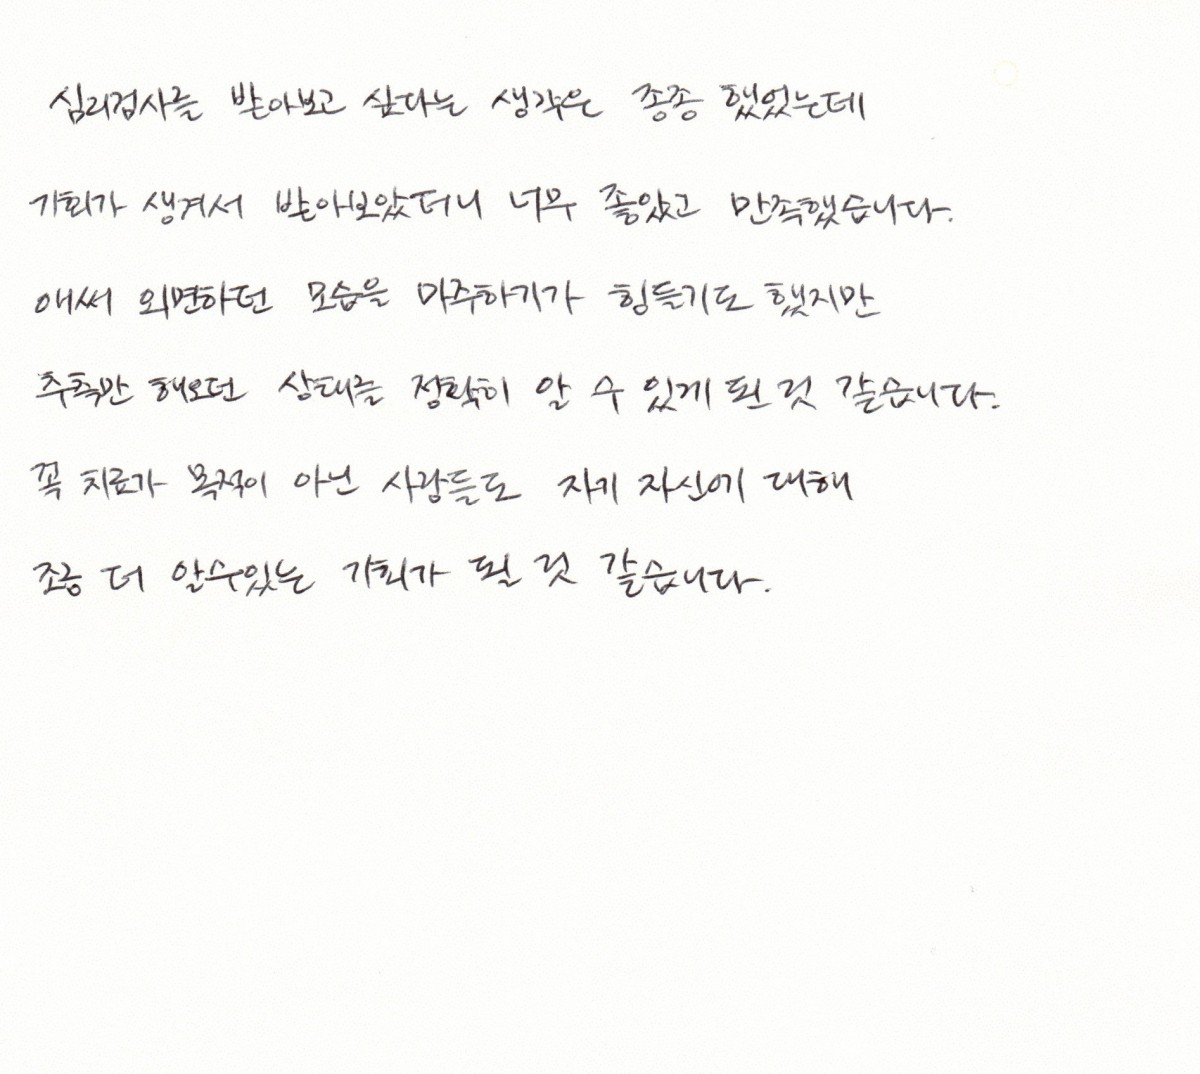 심리검사를 받아보고 싶다는 생각은 종종 했었는데
기회가 생겨서 받아보았더니 너무 좋았고 만족했습니다.
애써 외면하던 모습을 마주하기가 힘들기도 했지만
추측만 해오던 상태를 정확히 알 수 있게 된 것 같습니다.
꼭 치료가 목적이 아닌 사람들도 자기 자신에 대해
조금 더 알수있는 기회가 될 것 같습니다.